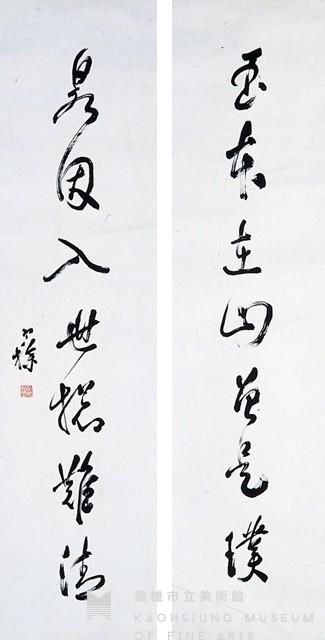 玉本在山是璞
泉因入世難清
高雄市立美術館
KAOHSIUNG MUSEUM
OF FINE ARTS